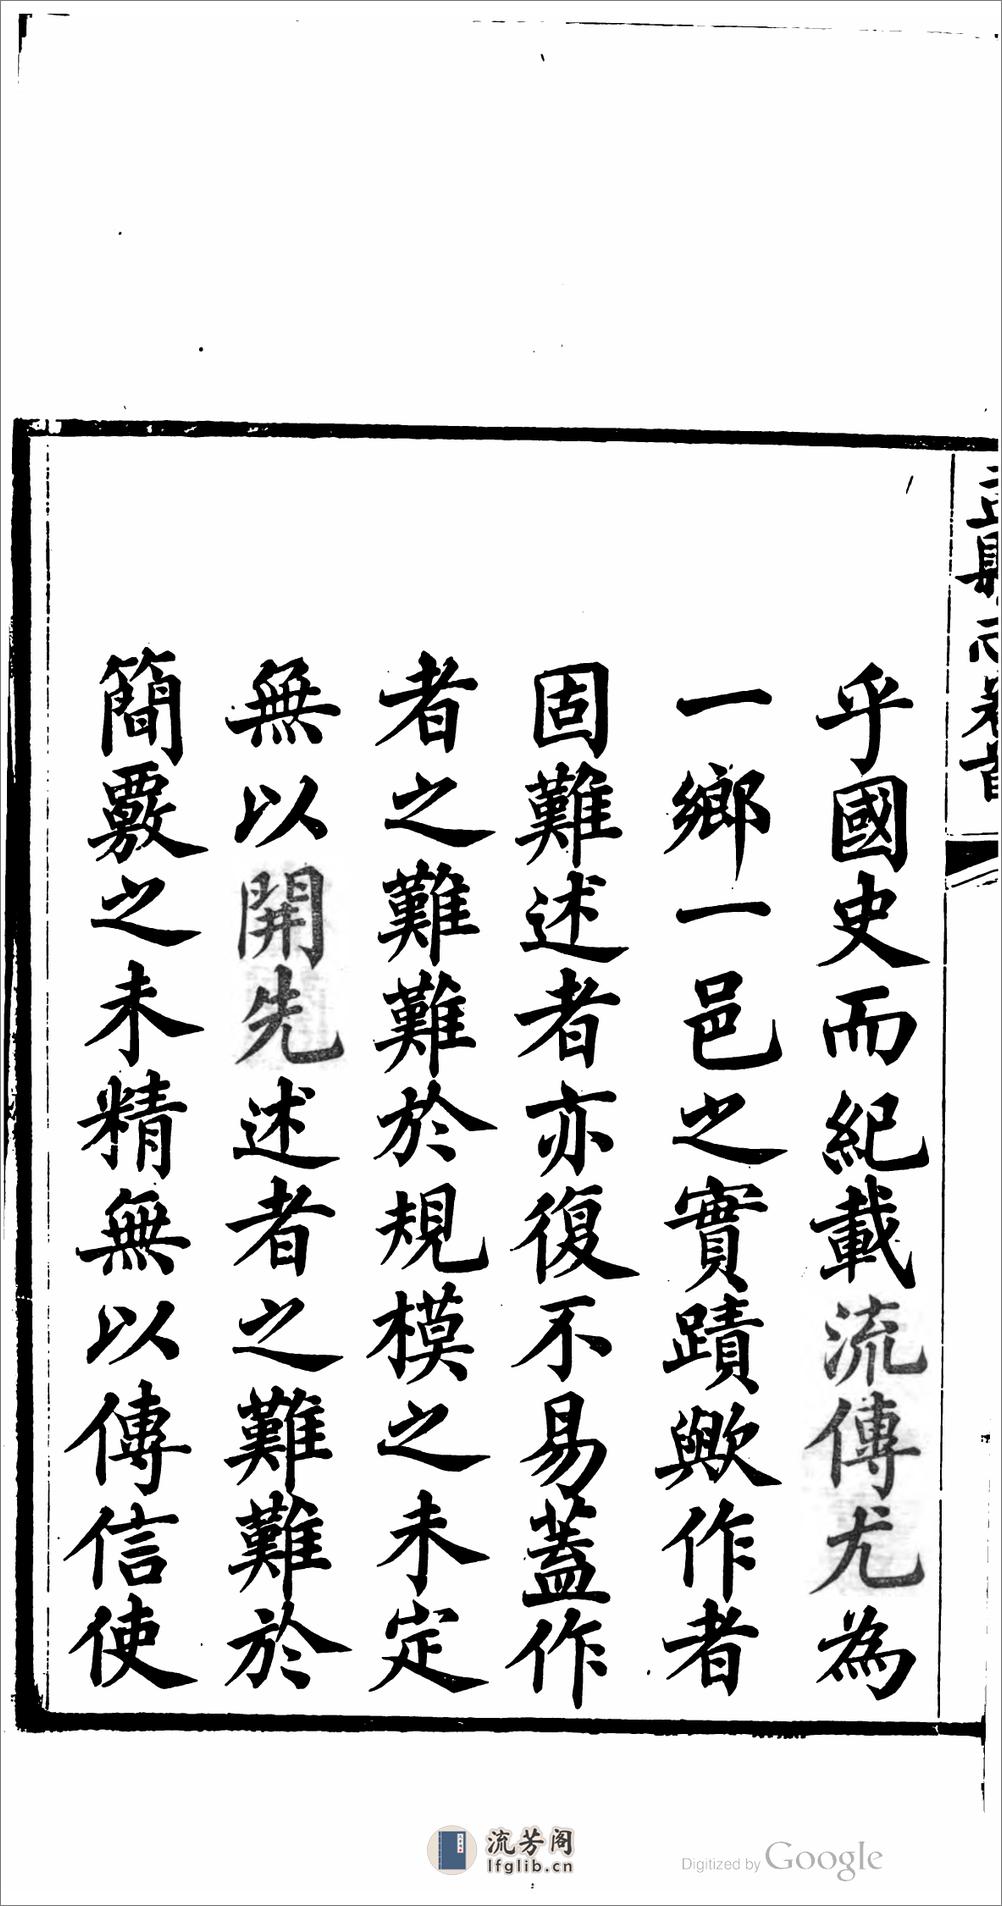 乎國史而紀載流傳尤為
一鄉一邑之實蹟歟作者
固難述者亦復不易蓋作
者之難難於規模之未定
無以開先述者之難難於
簡覈之未精無以傳信使
卷首
流芳阁
lfglib.cn
Digitized by Google